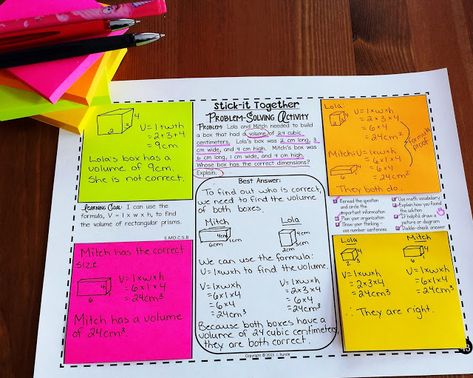 Stick-it Together
Problem-Solving Activity
Problem: Lola and Mitch needed to build
a box that had a volume of 24 cubic
centimeters. Lola's box was 2 cm long, 3
cm wide, and 4 cm high. Mitch's box was
6 cm long, 1 cm wide and 4 cm high.
Whose box has the correct dimensions?
Explain.
V = l x w x h
= 2+3+4
= 9cm
Lola's box has a
volume of 9cm.
She is not correct.
Learning Goal: I can use the
formula, V = l x w x h, to find
the volume of rectangular prisms.
5.MD.C.5.B
Mitch has the correct
size.
4
6
V = l x w x h
= 6 x 1 x 4
= 24cm³
Mitch has a volume
of 24cm³.
Best Answer:
To find out who is correct,
we need to find the volume
of both boxes.
Mitch
Lola
We can use the formula:
V = l x w x h to find the volume.
V = l x w x h
= 6 x 1 x 4
= 6 x 4
= 24cm³
V = l x w x h
= 2 x 3 x 4
= 6 x 4
= 24cm³
Because both boxes have a
volume of 24 cubic centimeters,
they are both correct.
Lola
V = l x w x h
= 2 x 3 x 4
= 6 x 4
= 24cm³
Mitch
V = l x w x h
= 6 x 1 x 4
= 6 x 4
= 24cm³
They both do.
Reread the question
and circle the
important information
Plan your organization
Show your thinking -
use number sentences
Use math vocabulary
Explain how you found
the solution
If helpful draw a
picture or diagram
Double-check answer
Lola
V = l x w x h
= 2 x 3 x 4
= 6 x 4
= 24cm³
Mitch
V = l x w x h
= 6 x 1 x 4
= 6 x 4
= 24cm³
∴ They are right.